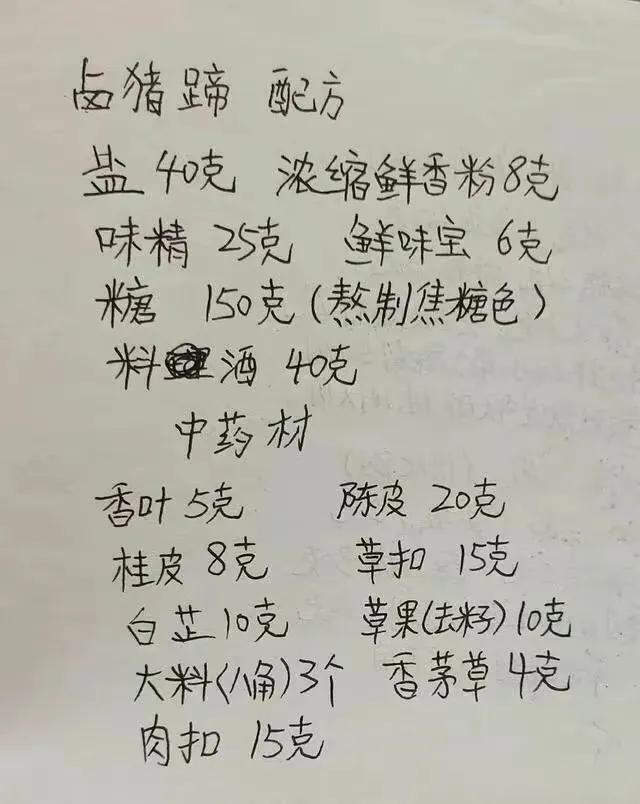 卤猪蹄 配方
盐 40克 浓缩鲜香粉 8克
味精 25克 鲜味宝 6克
糖 150克(熬制焦糖色)
料酒 40克
中药材
香叶 5克 陈皮 20克
桂皮 8克 草扣 15克
白芷 10克 草果(去籽) 10克
大料(八角) 3个 香茅草 4克
肉扣 15克